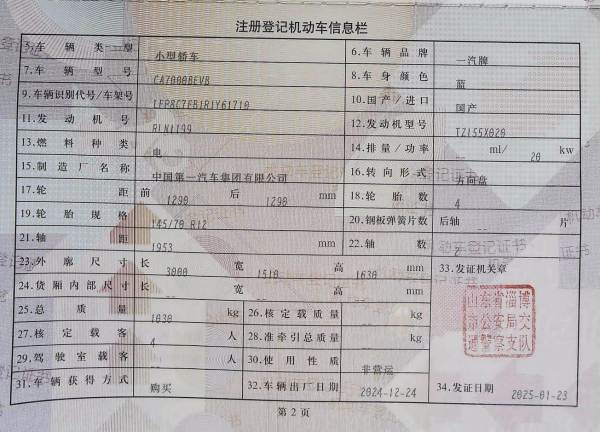 注册登记机动车信息栏
5.车辆类型 小型轿车 6.车辆品牌 一汽牌
7.车辆型号 CA7000BEVB 8.车身颜色 蓝
9.车辆识别代号/车架号 LFP8C7EB1R1Y61710 10.国产/进口 国产
11.发动机号 R1N1199 12.发动机型号 TZ155X020
13.燃料种类 电 14.排量/功率 -- ml/ 20 kw
15.制造厂名称 中国第一汽车集团有限公司 16.转向形式 方向盘
17.轮距 前 1290 后 1290 mm 18.轮胎数 4
19.轮胎规格 145/70 R12 20.钢板弹簧片数 后轴 -- 片
21.轴距 1953 mm 22.轴数 2
23.外廓尺寸 长 3000 宽 1510 高 1630 mm 33.发证机关章
24.货厢内部尺寸 长 -- 宽 -- 高 -- mm
25.总质量 1030 kg 26.核定载质量 -- kg
27.核定载客 4 人 28.准牵引总质量 -- kg
29.驾驶室载客 -- 人 30.使用性质 非营运
31.车辆获得方式 购买 32.车辆出厂日期 2024-12-24 34.发证日期 2025-01-23
山东省淄博
市公安局交
通警察支队
第2页